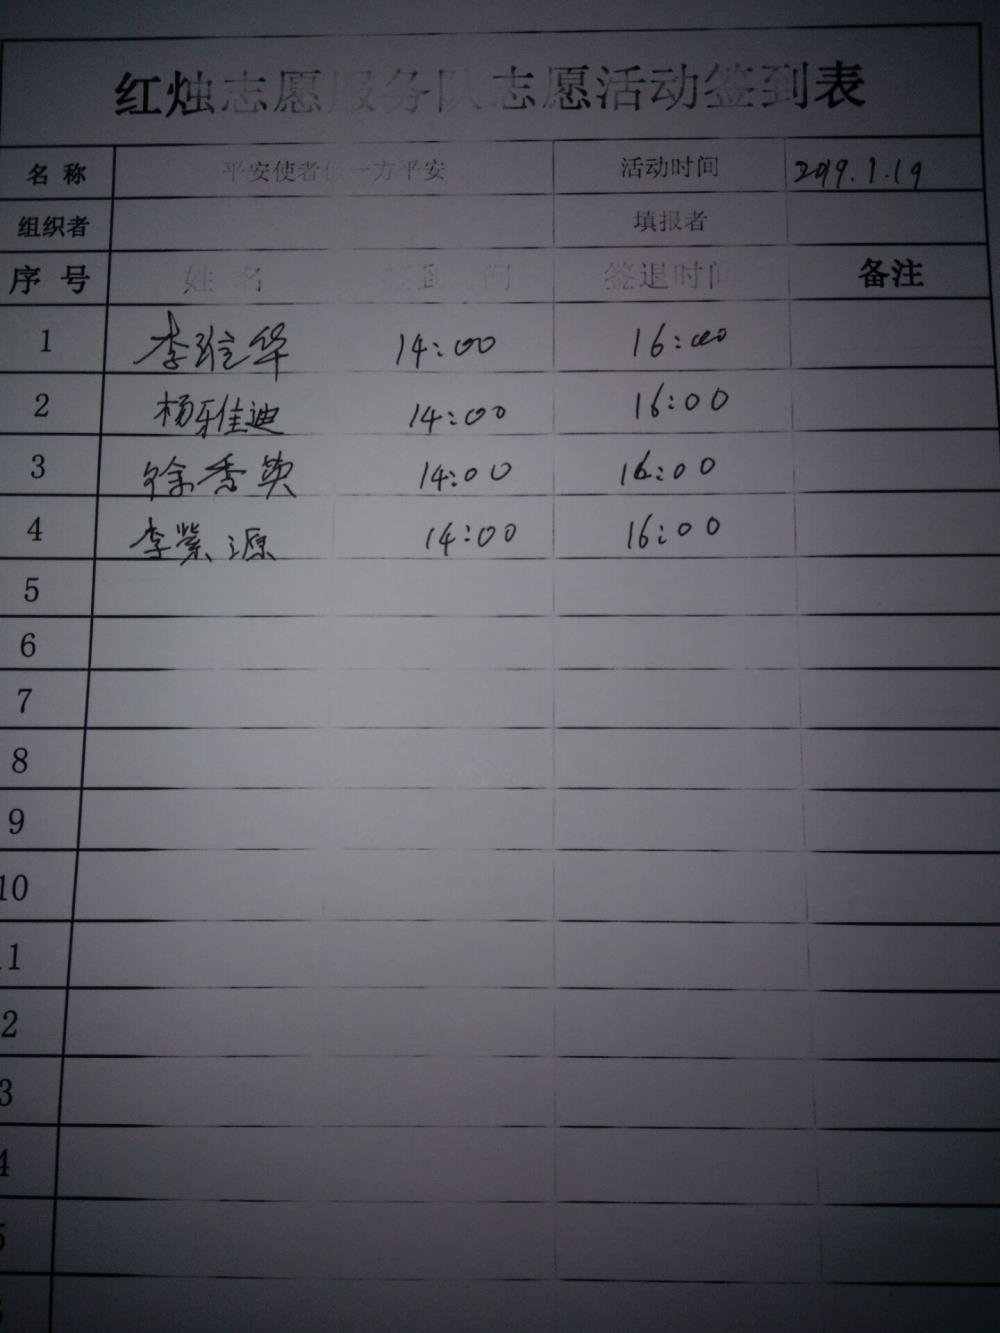 红烛志愿服务队志愿活动签到表
名 称 平安使者保一方平安 活动时间 2019.1.19
组织者 填报者
序 号 姓 名 签到时间 签退时间 备注
1 14:00 16:00
2 杨雅迪 14:00 16:00
3 徐秀英 14:00 16:00
4 李紫源 14:00 16:00
5
6
7
8
9
10